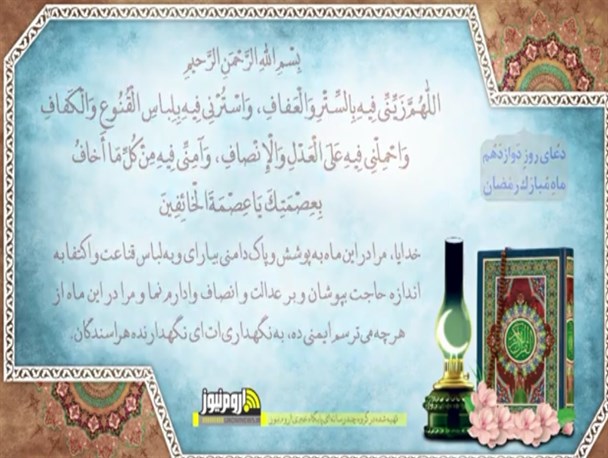 بِسْمِ اللهِ الرَّحْمَنِ الرَّحِيمِ
اللهُمَّ زَيِّنِّي فِيهِ بِالسِّتْرِ وَالْعَفافِ، وَاسْتُرْنِي فِيهِ بِلِباسِ الْقُنُوعِ وَالْكَفافِ
وَاحْمِلْنِي فِيهِ عَلَى الْعَدْلِ وَالْإِنْصافِ، وَآمِنِّي فِيهِ مِنْ كُلِّ مَا أَخافُ
بِعِصْمَتِكَ يَا عِصْمَةَ الْخائِفِينَ
دعای روز دوازدهم
ماه مبارک رمضان
خدایا، مرا در این ماه به پوشش و پاکدامنی بیارای و به لباس قناعت و اکتفا به
اندازه حاجت بپوشان و بر عدالت و انصاف وادارم نما و مرا در این ماه از
هرچه می‌ترسم ایمنی ده، به نگهداری‌ات ای نگهدارنده هراسندگان.
ارومنیوز